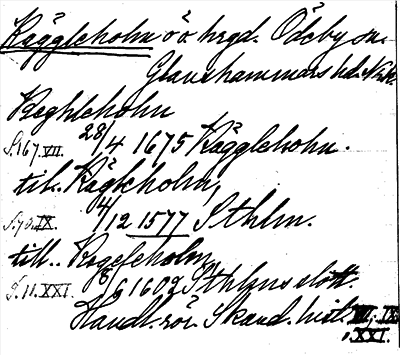 Käggleholm ö o hrgd. Ödeby sn.
Glanshammars hd. Nrk.
Keghleholm
S.167.VII. 28/4 1675 Käggleholm.
till. Kägleholm,
S.70.IX. 4/12 1577 Sthlm.
till.. Kegeleholm,
S.11.XXI. 8/6 1602 Sthlms slott.
Handl. rör. Skand. hist. VII, IX
o. XXI.